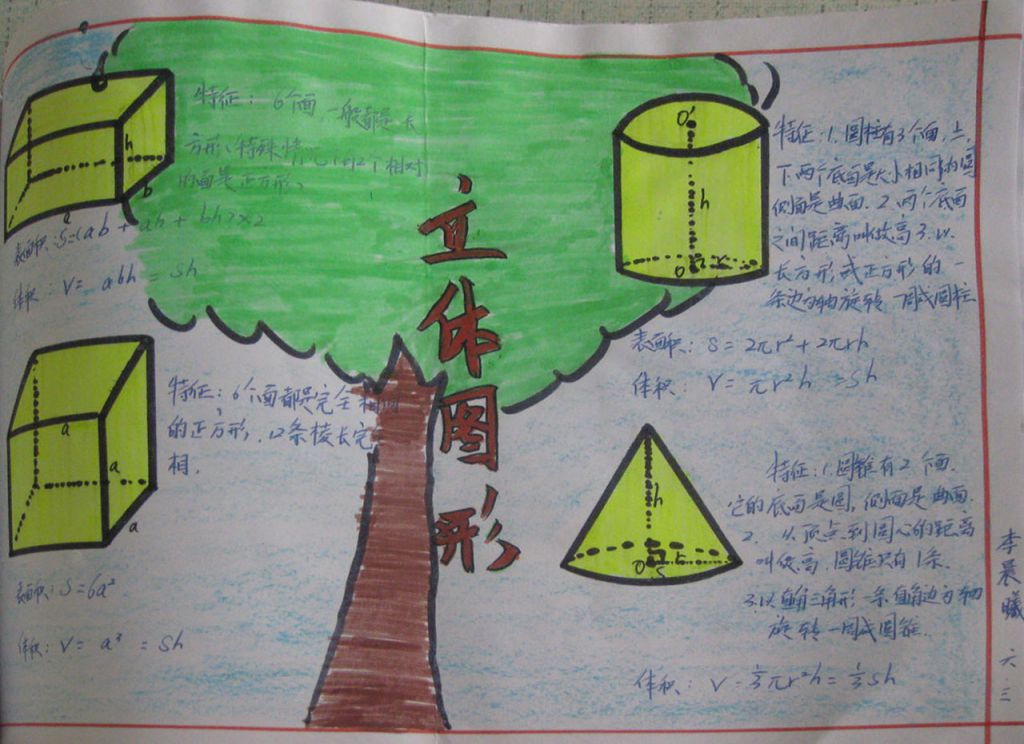 立体图形
特征：6个面，一般都是长
方形，特殊情 有2个相对
的面是正方形。
h
b
a
表面积：S=(ab+ah+bh)×2
体积：V=abh=sh
a
a
a
特征：6个面都是完全相同
的正方形，12条棱长完
相，
表面积：S=6a²
体积：V=a³=sh
O'
h
O
r
特征：1.圆柱有3个面，上
下两个底面是大小相同的圆
侧面是曲面.2.两个底面
之间距离叫做高3.以
长方形或正方形的一
条边为轴旋转一周成圆柱
表面积：S=2πr²+2πrh
体积：V=πr²h=sh
h
O
r
S
特征：1.圆锥有2个面.
它的底面是圆，侧面是曲面.
2.从顶点到圆心的距离
叫做高，圆锥只有1条.
3.以直角三角形一条直角边为轴
旋转一周成圆锥.
体积：V=⅓πr²h=⅓sh
李晨曦 六三